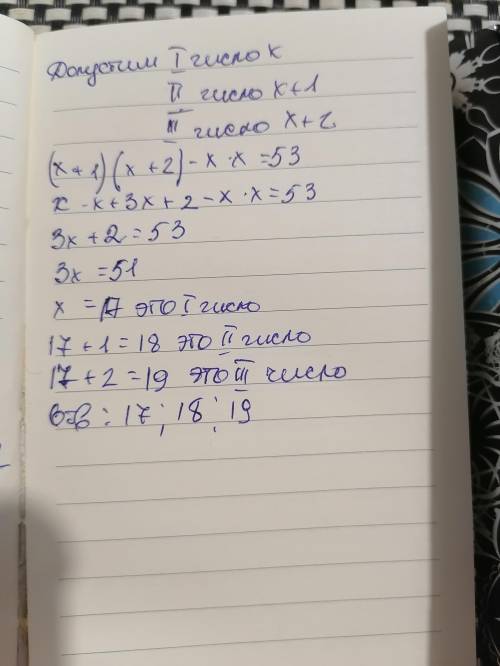 Допустим I число x
II число x+1
III число x+2
(x+1)(x+2)-x·x=53
x·x+3x+2-x·x=53
3x+2=53
3x=51
x=17 это I число
17+1=18 это II число
17+2=19 это III число
Отв: 17; 18; 19